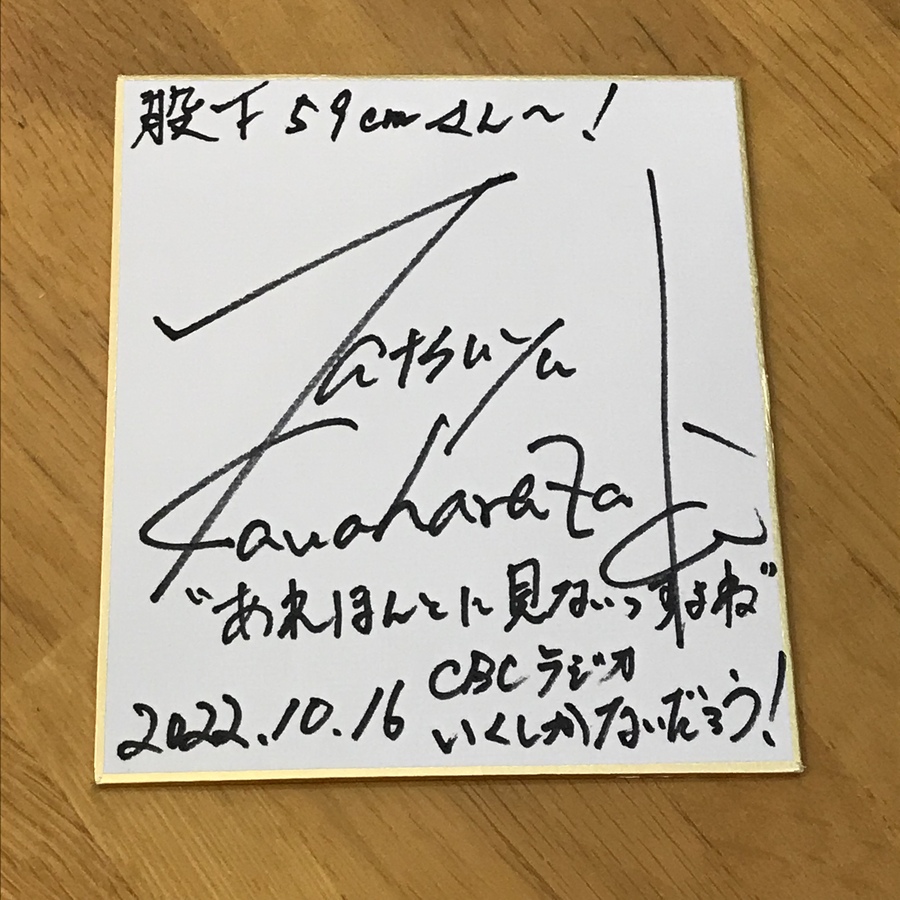 股下59cmさん〜!
Tatsuya
Kawaharazaki
"あれほんとに見ないっすよね"
2022.10.16
CBCラジオ
いくしかないだろう!